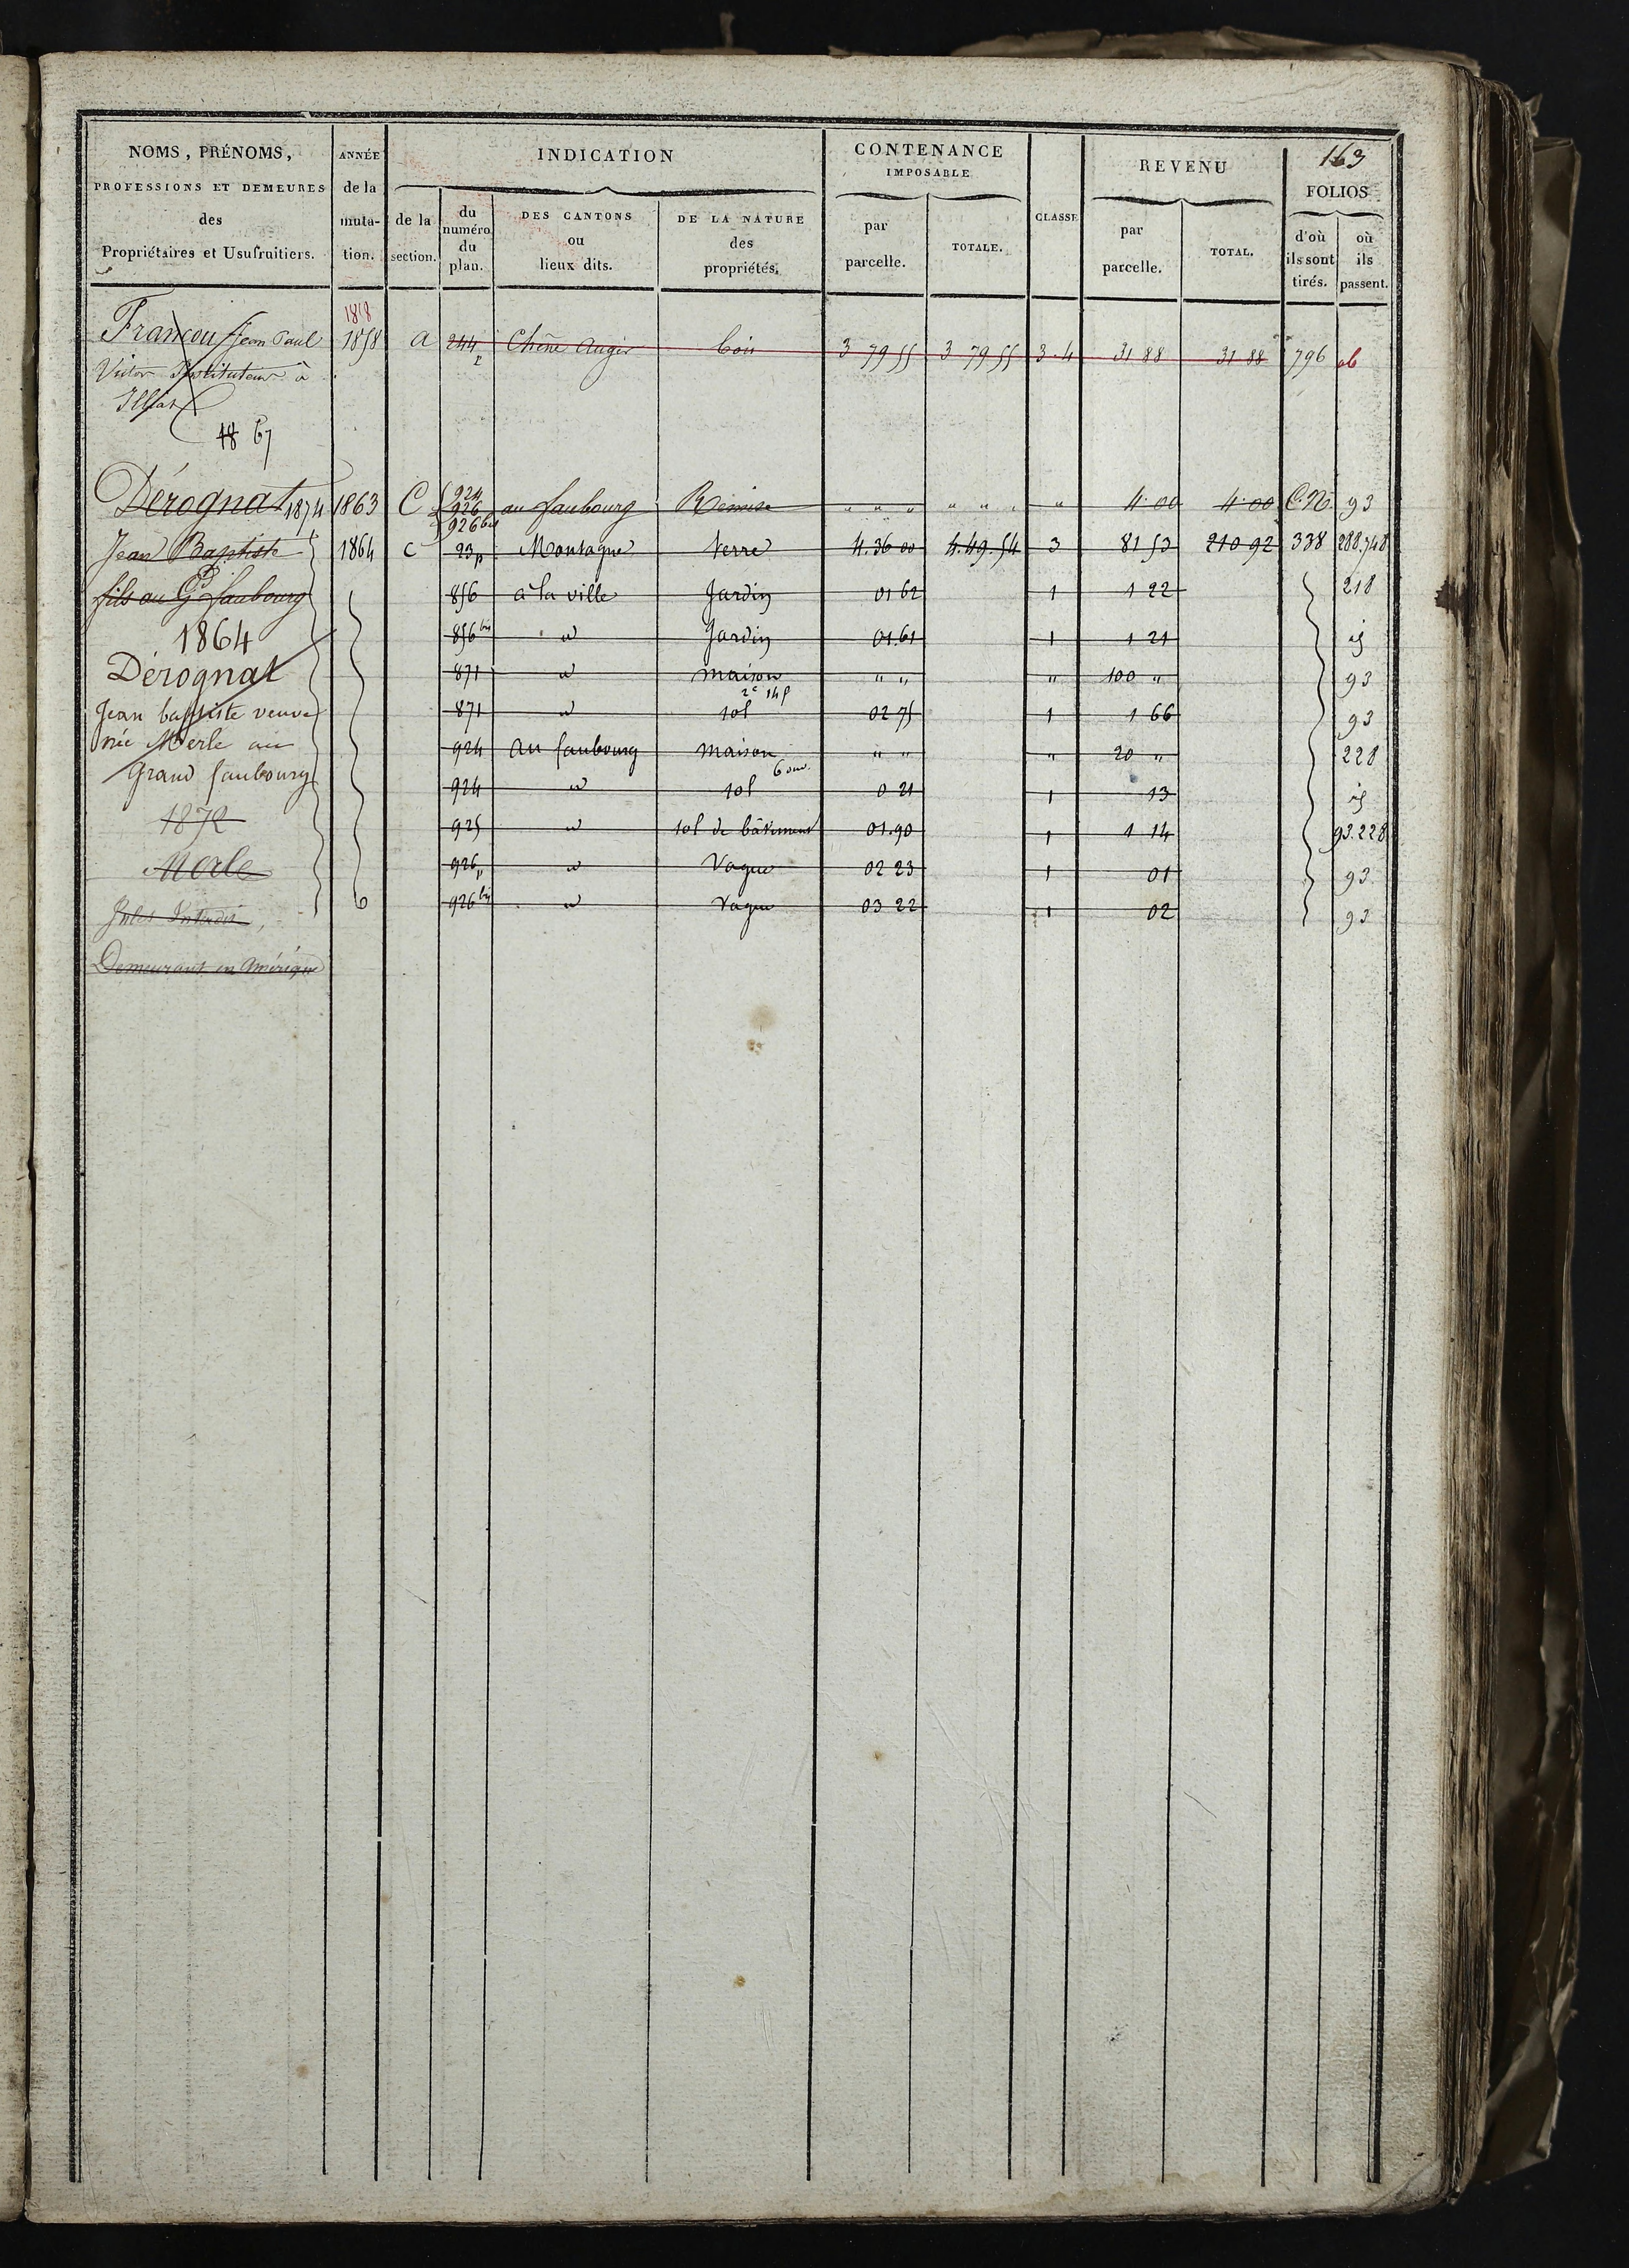 163
NOMS, PRÉNOMS, PROFESSIONS ET DEMEURES des Propriétaires et Usufruitiers.
ANNÉE de la muta- tion.
INDICATION
de la section.
du numéro du plan.
DES CANTONS ou lieux dits.
DE LA NATURE des propriétés.
CONTENANCE IMPOSABLE
par parcelle.
TOTALE.
CLASSE
REVENU
par parcelle.
TOTAL.
FOLIOS
d'où ils sont tirés.
où ils passent.
1818
Françou Jean Paul 1858 a 244 p Chêne Augier bois 3 79 55 3 79 55 3-4 31 88 31 88 796
Victor Instituteur à
1867
Dérognat 1874 1863 C 924 926 926 bis au faubourg Remise " " " " " " " 4.00 4.00 C.N. 93
Jean Baptiste 1864 c 23p Montagne terre 4.36 00 4.49.54 3 81 53 210 92 338 288.748
fils au Gd faubourg 856 à la ville Jardin 01 62 1 1 22 218
1864 856 bis id Jardin 01.61 1 1 21 id
Dérognat 871 id maison " " " 100 " 93
2e 14 p
Jean baptiste veuve 871 id sol 02 75 1 1 66 93
née Merle au 924 au faubourg maison " " " 20 " 228
6 ouv.
Grand faubourg 924 id sol 0 21 1 13 id
1872 925 id sol de bâtiment 01.90 1 1 14 93.228
Merle 926p id Vague 02 23 1 01 93
Jules 926 bis id Vague 03 22 1 02 93
Demeurant en Amérique